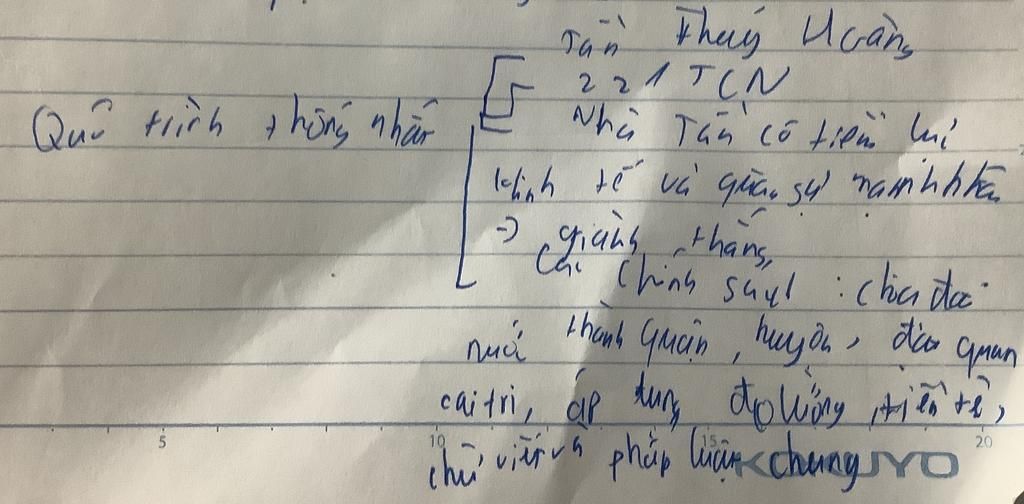 Tần Thuỷ Hoàng
221 TCN
Quá trình thống nhất
Nhà Tần có tiềm lực
kinh tế và quân sự mạnh nhất
→ giành thắng
Các chính sách : chia đất
nước thành quận, huyện, đặt quan
cai trị, áp dụng đo lường, tiền tệ,
chữ viết và pháp luật chung
5 10 15 20
KOKUYO